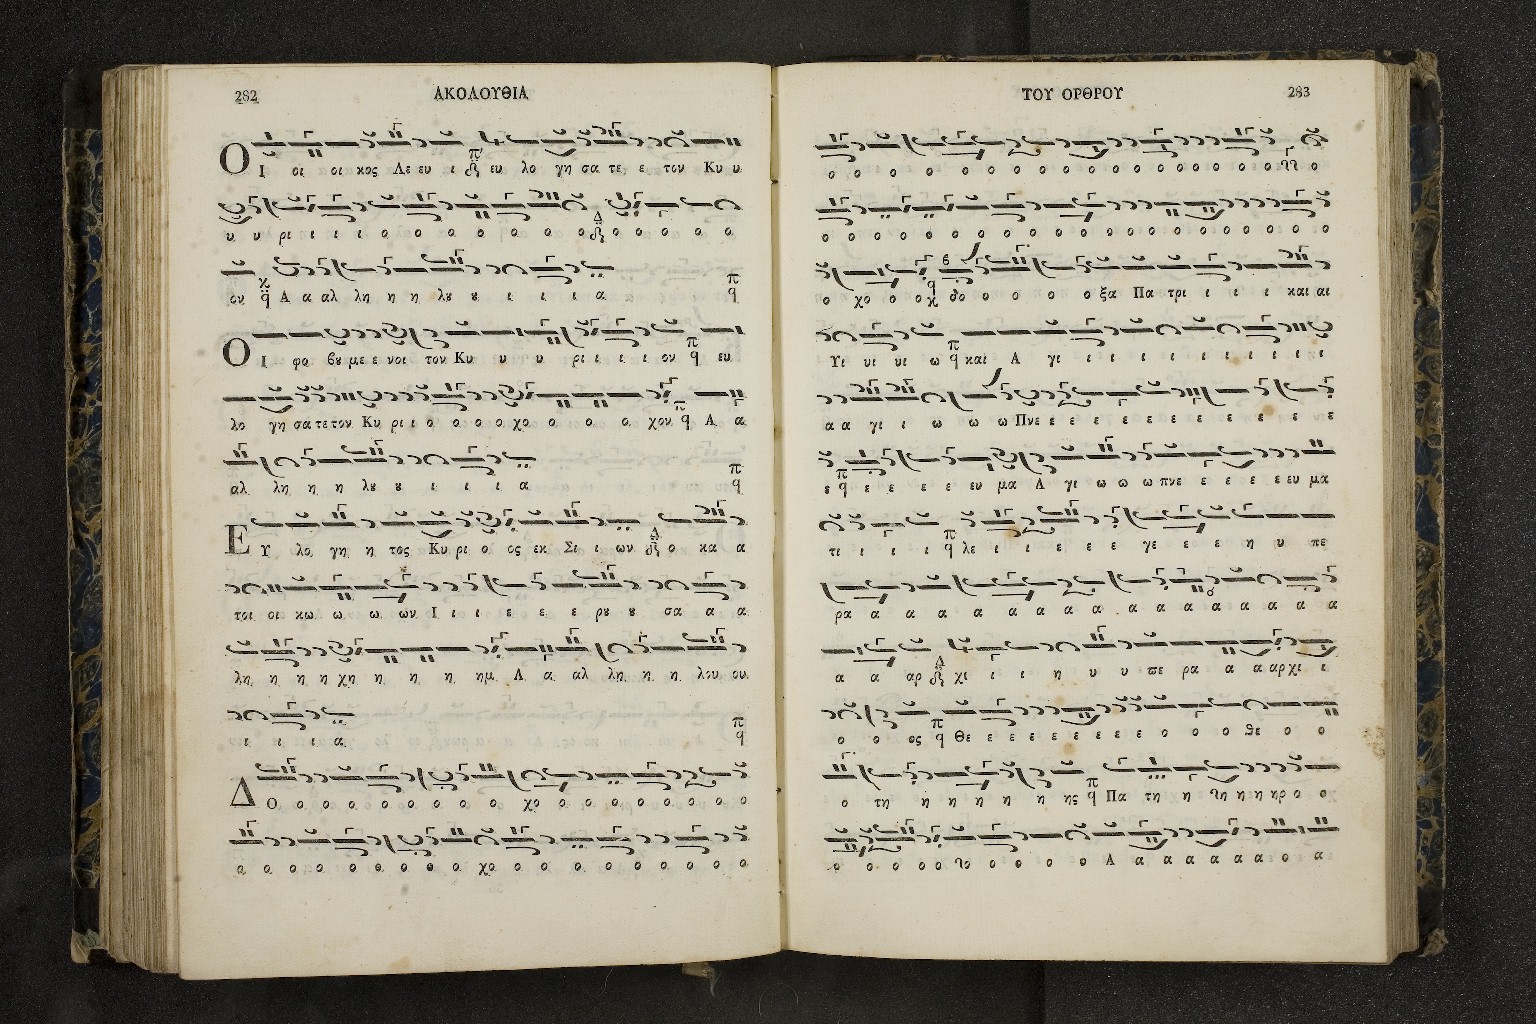 282
ΑΚΟΛΟΥΘΙΑ
ΟΙ οι οι κος Λε ευ ι ευ λο γη σα τε ε τον Κυ υ
υ υ ρι ι ι ι ο ο ο ο ο ο ο ο ο ο ο ο ο
ον Α α αλ λη η η λȣ ȣ ι ι ι α
ΟΙ φο βȣ με ε νοι τον Κυ υ υ υ ρι ι ι ι ον ευ
λο γη σα τε τον Κυ ρι ι ο ο ο ο χο ο ο ο χον Α α
αλ λη η η λȣ ȣ ι ι ι α
ΕΥ λο γη η τος Κυ ρι ο ος εκ Σι ι ων ο κα α
τοι οι κω ω ω ων Ι ι ι ε ε ε ρȣ ȣ σα α α
λη η η η χη η η η ημ Α α αλ λη η η λου ου
ι ι ι α
ΔΟ ο ο ο ο ο ο ο ο χο ο ο ο ο ο ο ο
ο ο ο ο ο ο ο ο ο χο ο ο ο ο ο ο ο ο
ΤΟΥ ΟΡΘΡΟΥ
283
ο χο ο ο δο ο ο ο ο ο ξα Πα τρι ι ι ι και αι
Υι υι υι ω και Α γι ι ι ι ι ι ι ι ι ι ι
α α γι ι ω ω ω Πνε ε ε ε ε ε ε ε ε ε ε ε
ε ε ε ε ε ευ μα Α γι ω ω ω πνε ε ε ε ε ευ μα
τι ι ι ι λε ι ι ε ε ε γε ε ε η υ πε
ρα α α α α α α α α α α α α α α α
α α αρ χι ι ι η υ υ πε ρα α α αρ χι ι
ο ο ος Θε ε ε ε ε ε ε ε ο ο ο Θε ο ο
ο τη η η η η η ης Πα τη η η η ηρ ο ο
ο ο ο ο ο ο ο ο ο Α α α α α α α ο α